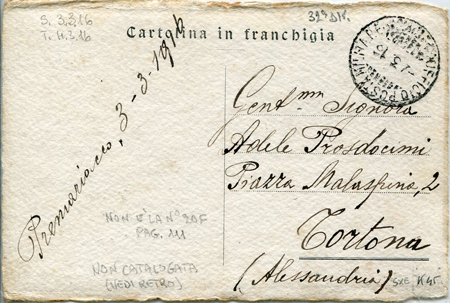 S. 3,3,16
T. 4.3.16
32ª DIV.
Cartolina in franchigia
Premariacco, 3-3-1916
Gent.ma Signora
Adele Prosdocimi
Piazza Malaspina, 2
Tortona
(Alessandria)
NON È LA Nº 20F
PAG. 111
NON CATALOGATA
(VEDI RETRO)